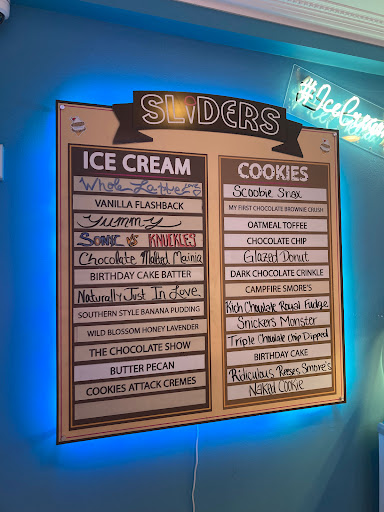 SLiDERS
#IceCream
ICE CREAM
Whole Latte Love
VANILLA FLASHBACK
Yummy
SONIC KNUCKLES
Chocolate Malted Mainia
BIRTHDAY CAKE BATTER
Naturally Just In Love
SOUTHERN STYLE BANANA PUDDING
WILD BLOSSOM HONEY LAVENDER
THE CHOCOLATE SHOW
BUTTER PECAN
COOKIES ATTACK CREMES
COOKIES
Scoobie Snax
MY FIRST CHOCOLATE BROWNIE CRUSH
OATMEAL TOFFEE
CHOCOLATE CHIP
Glazed Donut
DARK CHOCOLATE CRINKLE
CAMPFIRE SMORE'S
Rich Chocolate Royal Fudge
Snickers Monster
Triple Chocolate Chip Dipped
BIRTHDAY CAKE
Ridiculous Reeses Smore's
Naked Cookie